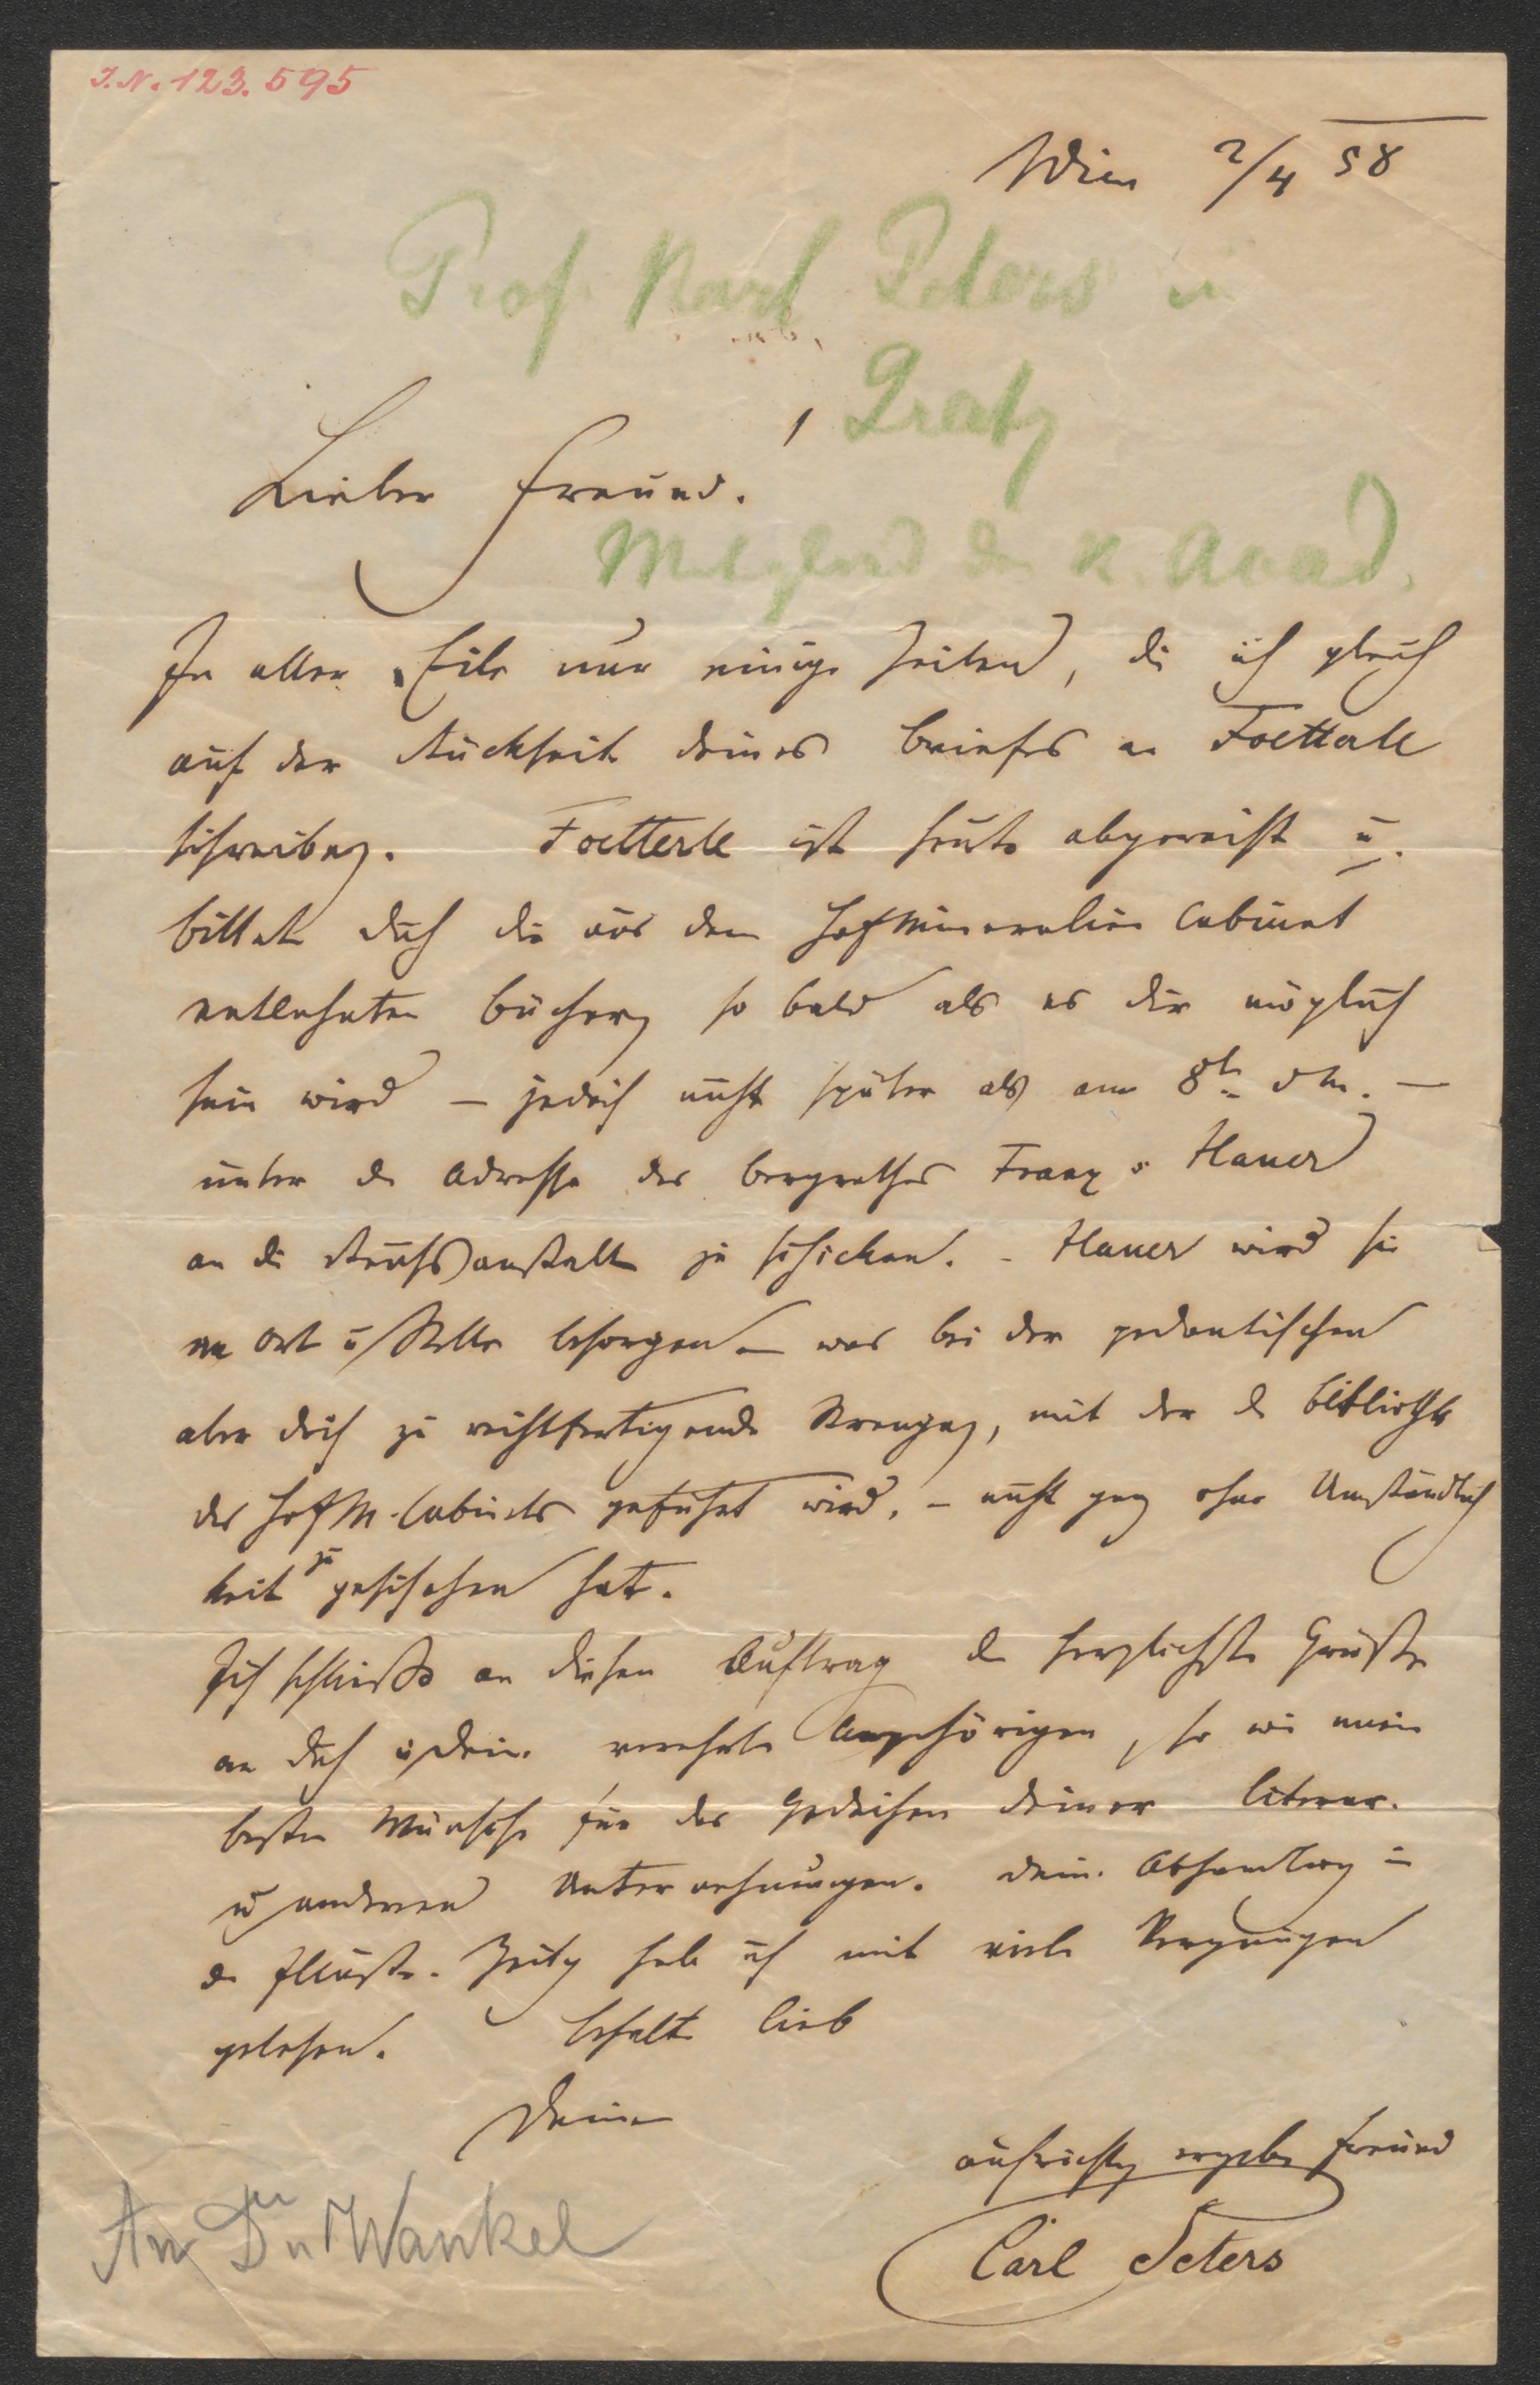 I.N. 123.595
Wien 2/4 58
Prof. Karl Peters in
Gratz
Mitglied der k. Acad.
Lieber Freund.
In aller Eile nur einige Zeilen, die ich gleich
auf der Rückseite deines Briefes an Foetterle
schreibe. Foetterle ist heute abgereist u.
bittet dich die aus dem Hofmineralien Cabinet
entlehnten Bücher so bald als es dir möglich
sein wird – jedoch nicht später als am 8t. d M. –
unter der Adresse des Bergrathes Franz v Hauer
an die Reichsanstalt zu schicken. – Hauer wird sie
an Ort u Stelle besorgen – was bei der pedantischen
aber doch zu rechtfertigende Strenge, mit der die Bibliothek
des Hof M. Cabinets geführt wird, – nicht ganz ohne Umständlich
keit zu geschehen hat.
Ich schließe an diesen Auftrag die herzlichsten Grüße
an dich u deine verehrten Angehörigen, so wie meine
besten Wünsche für das Gedeihen deiner literar.
u anderen Unternehmungen. Deine Abhandlung in
der Illustr. Zeitg habe ich mit viele Vergnügen
gelesen. Behalte lieb
Deinen
aufrichtig ergeben Freund
Carl Peters
An Dr Wankel